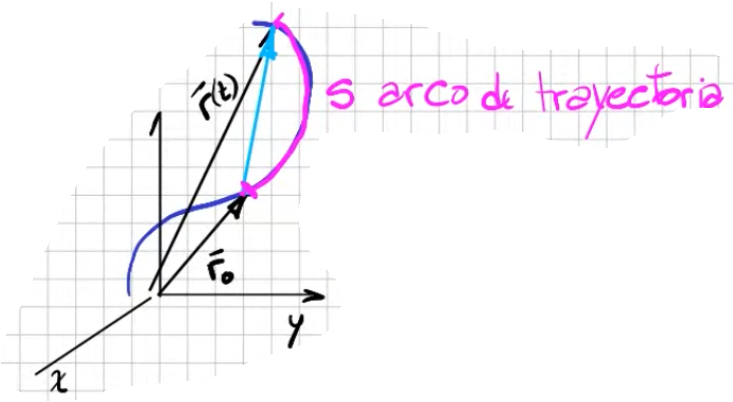 r⃗(t)
s arco de trayectoria
r⃗₀
y
x